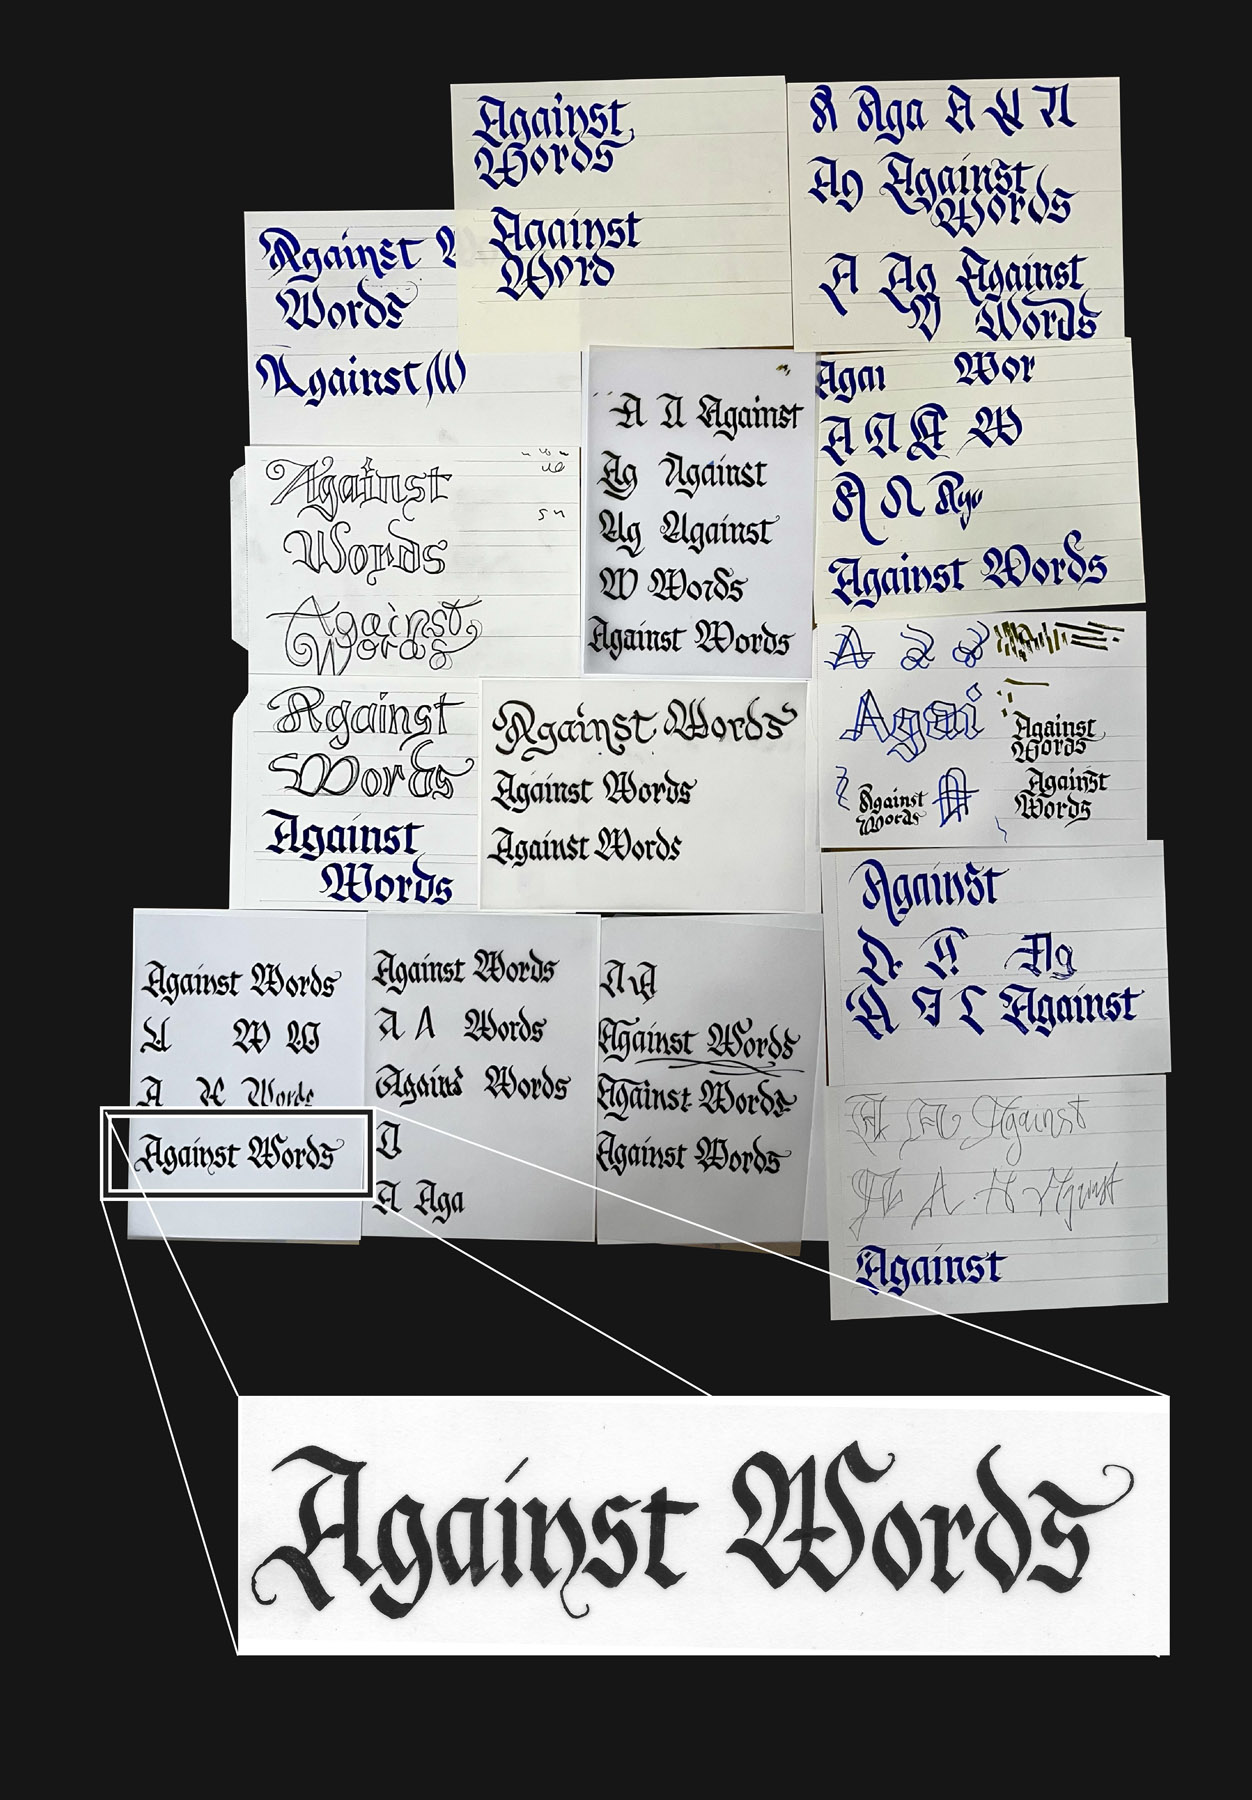 Against
Words
Against
Word
A Aga A A A
Ag Against
Words
A Ag Against
Words
Against W
Words
Against W
Against
Words
Against
Words
A A Against
Ag Against
Ag Against
W Words
Against Words
Agai Wor
A A A W
A A Aga
Against Words
A
Agai
Against
Words
Against
Words
Against
Words
Against
Words
Against
Words
Against Words
Against Words
Against Words
Against
A A Ag
A Against
Against Words
A W W
A Words
Against Words
Against Words
A A Words
Against Words
A
A Aga
A A
Against Words
Against Words
Against Words
A A Against
A A Against
Against
Against Words